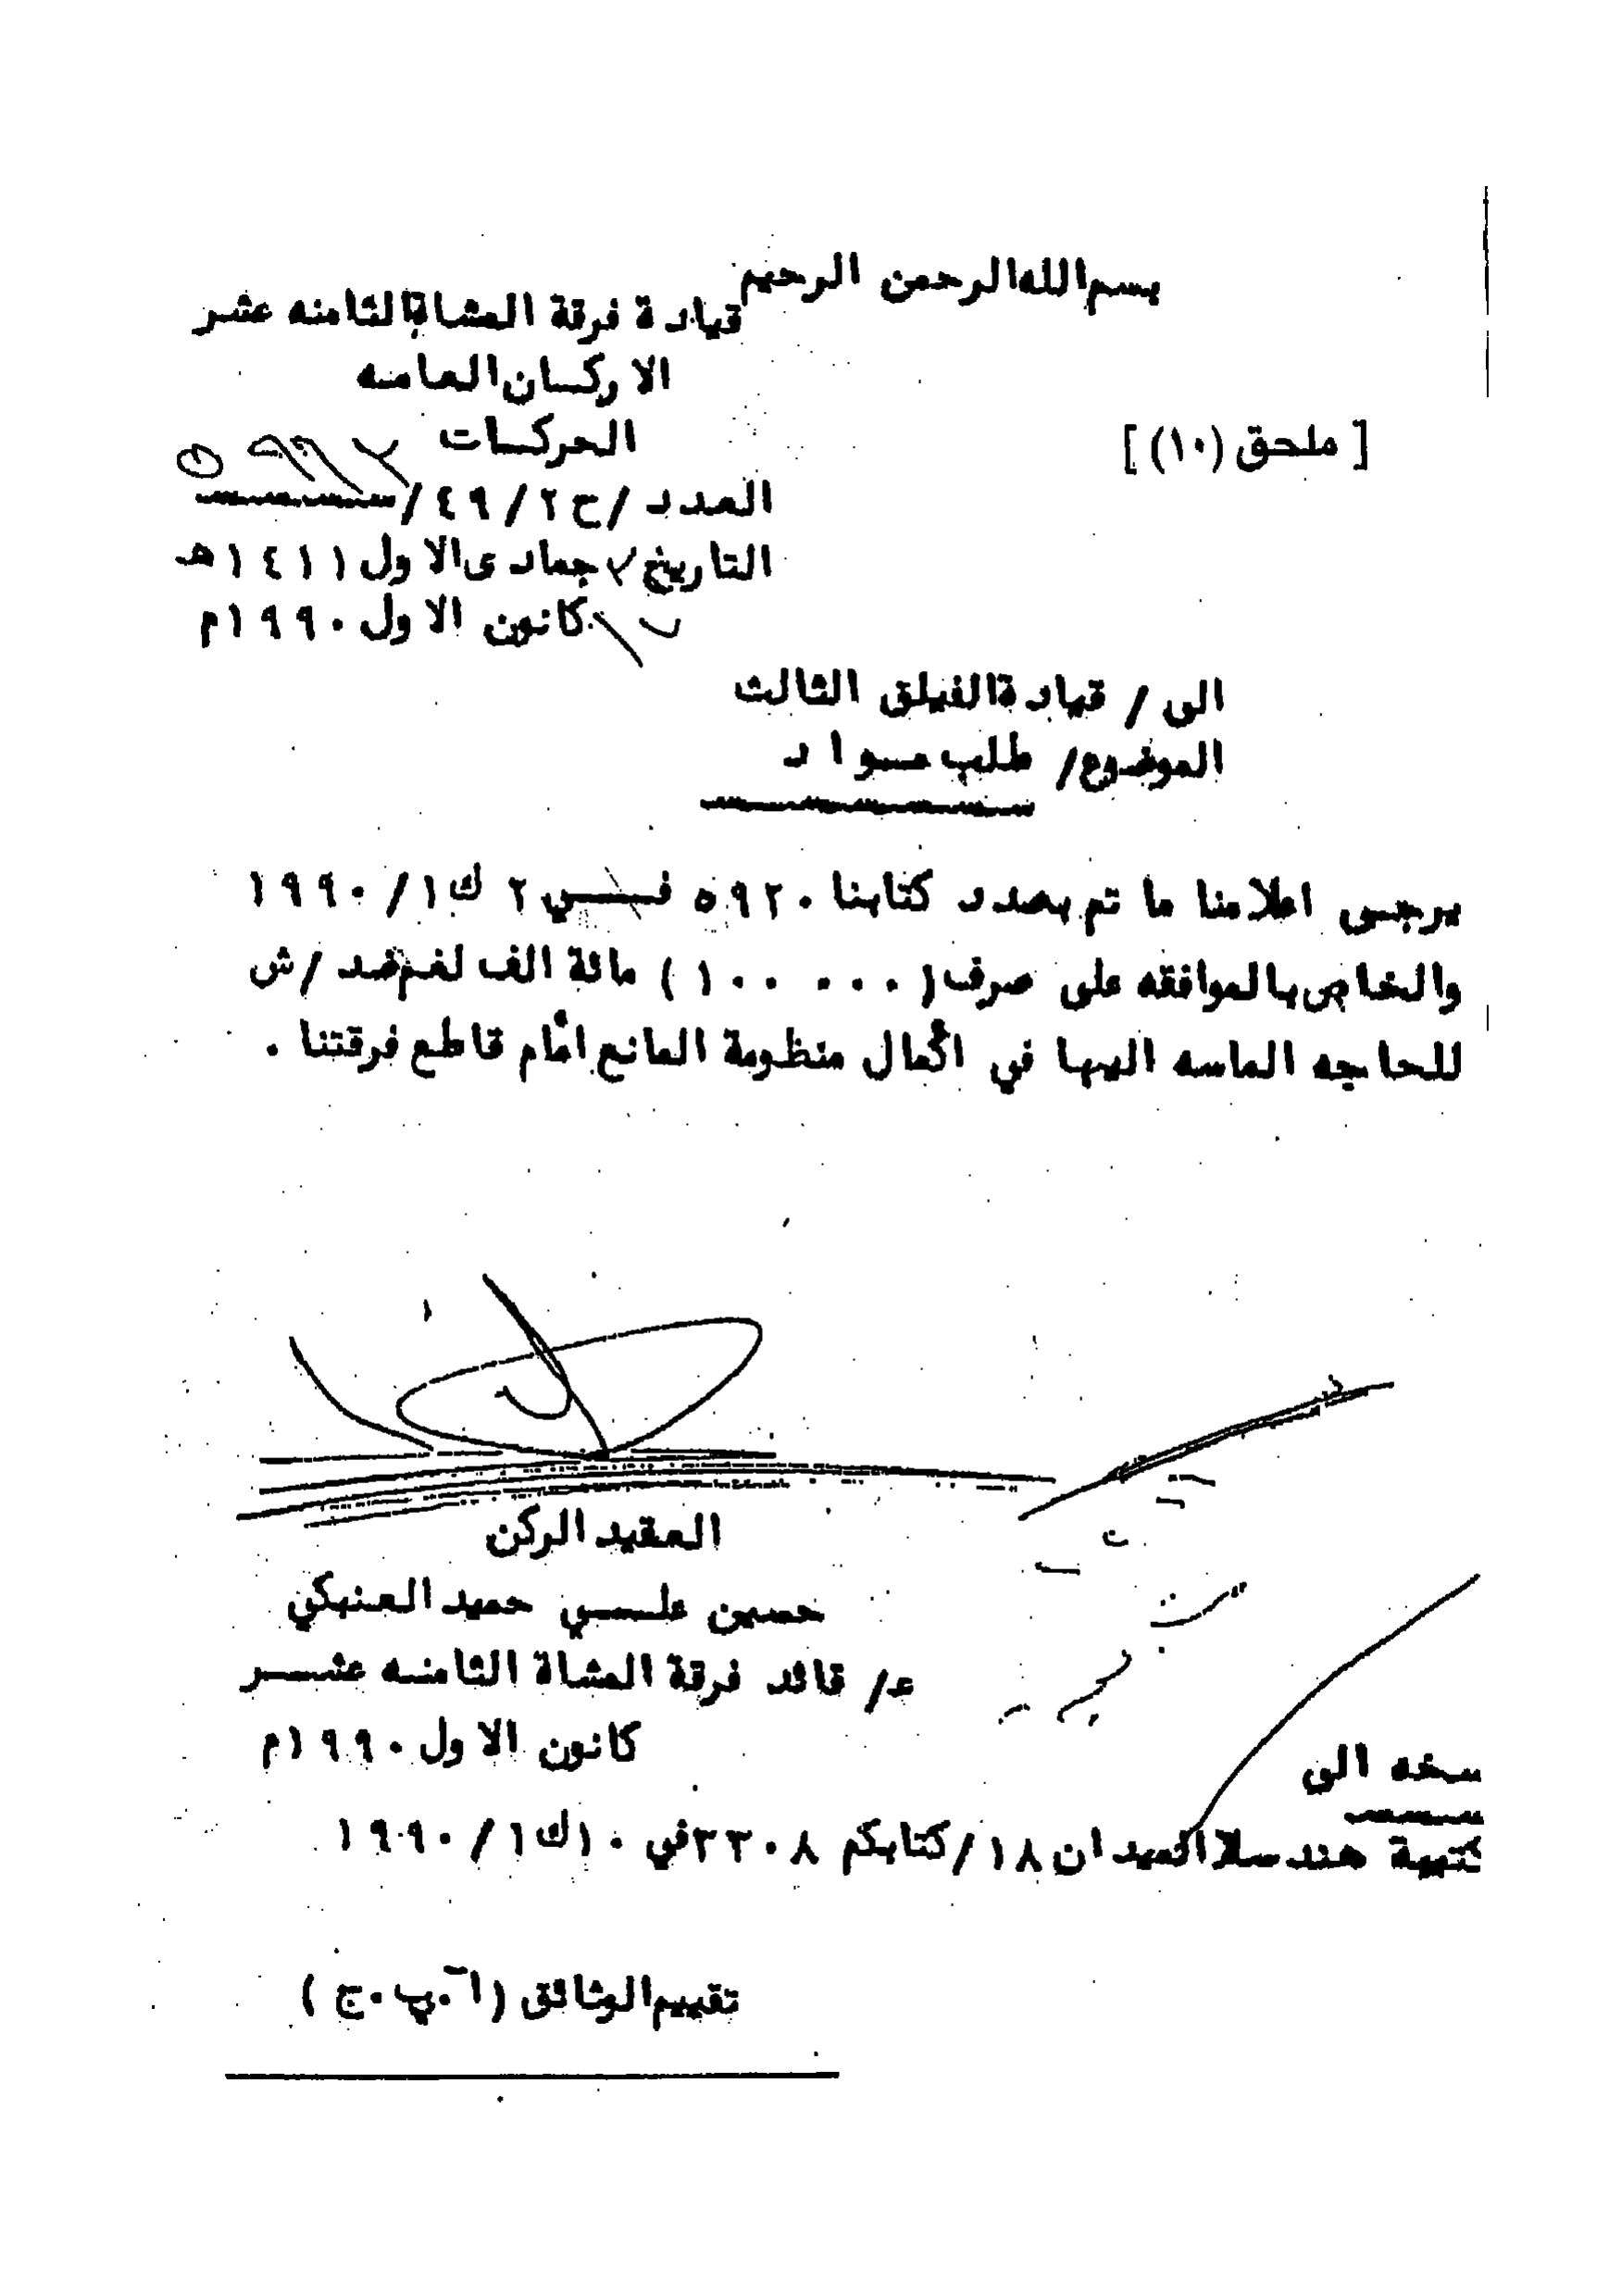 بسم الله الرحمن الرحيم
قيادة فرقة المشاة الثامنه عشر
الاركان العامه
الحركات
[ملحق (١٠)]
العدد /ح٢/٤٩/
التاريخ جمادى الاول ١٤١١هـ
كانون الاول ١٩٩٠م
الى / قيادة الفيلق الثالث
الموضوع/ طلب مواد
يرجى اعلامنا ما تم بصدد كتابنا ٥٩٢٠ في ٢ ك١/١٩٩٠
والخاص بالموافقه على صرف (١٠٠٠٠٠) مائة الف لغم ضد /ش
للحاجه الماسه اليها في اكمال منظومة المانع أمام قاطع فرقتنا .
العقيد الركن
حسين علي حميد العنبكي
ع/ قائد فرقة المشاة الثامنه عشر
كانون الاول ١٩٩٠م
سخه الى
كتيبة هندسة الميدان ١٨/كتابكم ٣٣٠٨ في ١٠ك١/١٩٩٠
تقييم الوثائق (أ.ب.ج)